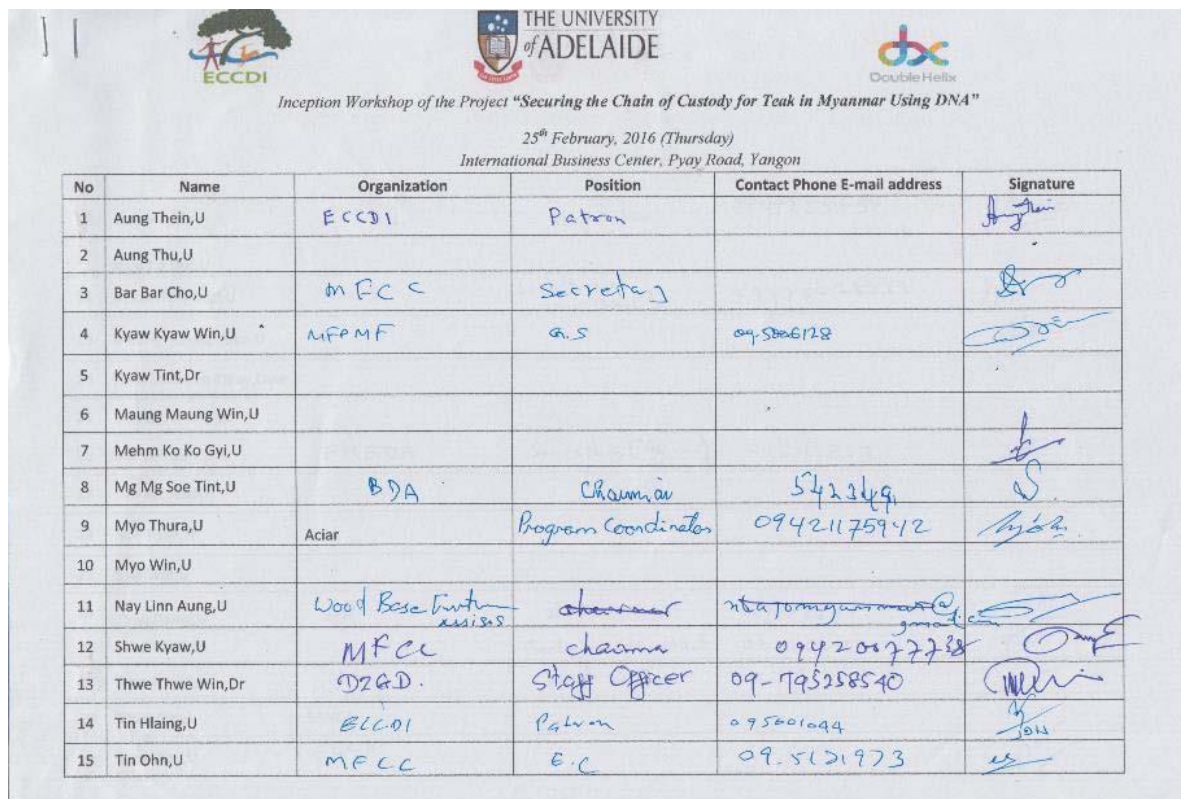 ECCDI
THE UNIVERSITY
of ADELAIDE
dbx
Double Helix
Inception Workshop of the Project "Securing the Chain of Custody for Teak in Myanmar Using DNA"
25th February, 2016 (Thursday)
International Business Center, Pyay Road, Yangon
No Name Organization Position Contact Phone E-mail address Signature
1 Aung Thein,U ECCDI Patron
2 Aung Thu,U
3 Bar Bar Cho,U MFCC
4 Kyaw Kyaw Win,U MFPMF G.S
5 Kyaw Tint,Dr
6 Maung Maung Win,U
7 Mehm Ko Ko Gyi,U
8 Mg Mg Soe Tint,U BDA
9 Myo Thura,U Aciar Program Coordinator 09421175942
10 Myo Win,U
11 Nay Linn Aung,U Wood Base
12 Shwe Kyaw,U MFCC
13 Thwe Thwe Win,Dr DZGD. Staff Officer 09-795258540
14 Tin Hlaing,U ECCDI Patron 095601044
15 Tin Ohn,U MFCC E.C